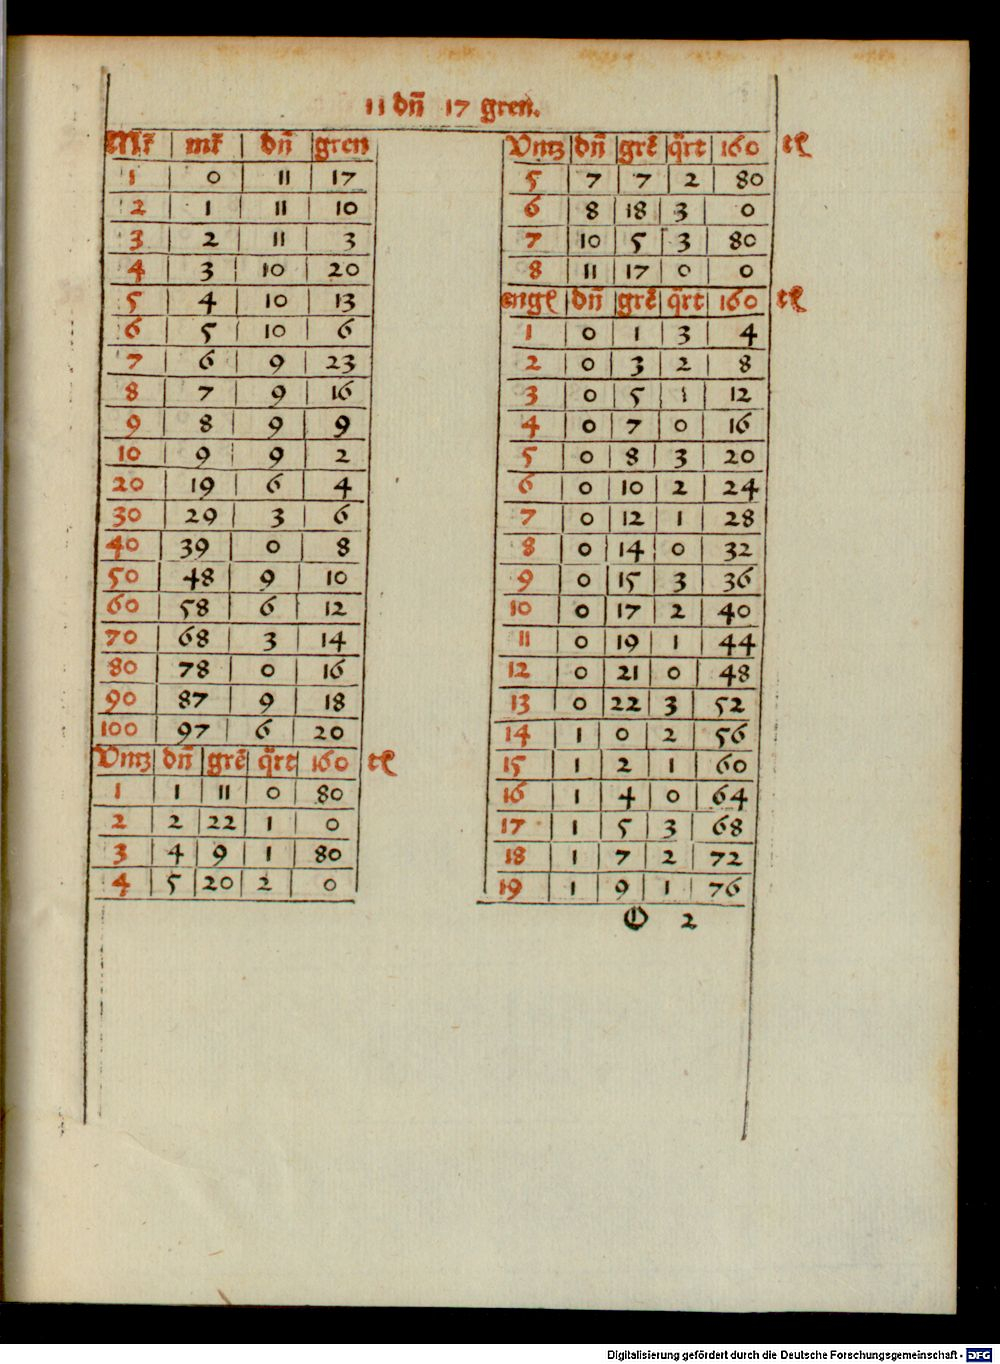 11 dn̄ 17 gren.
Mr̄ mr̄ dn̄ gren
1 0 11 17
2 1 11 10
3 2 11 3
4 3 10 20
5 4 10 13
6 5 10 6
7 6 9 23
8 7 9 16
9 8 9 9
10 9 9 2
20 19 6 4
30 29 3 6
40 39 0 8
50 48 9 10
60 58 6 12
70 68 3 14
80 78 0 16
90 87 9 18
100 97 6 20
Vntz dn̄ grē q̄rt 160 tl
1 1 11 0 80
2 2 22 1 0
3 4 9 1 80
4 5 20 2 0
Vntz dn̄ grē q̄rt 160 tl
5 7 7 2 80
6 8 18 3 0
7 10 5 3 80
8 11 17 0 0
engl dn̄ grē q̄rt 160 tl
1 0 1 3 4
2 0 3 2 8
3 0 5 1 12
4 0 7 0 16
5 0 8 3 20
6 0 10 2 24
7 0 12 1 28
8 0 14 0 32
9 0 15 3 36
10 0 17 2 40
11 0 19 1 44
12 0 21 0 48
13 0 22 3 52
14 1 0 2 56
15 1 2 1 60
16 1 4 0 64
17 1 5 3 68
18 1 7 2 72
19 1 9 1 76
2
Digitalisierung gefördert durch die Deutsche Forschungsgemeinschaft - DFG